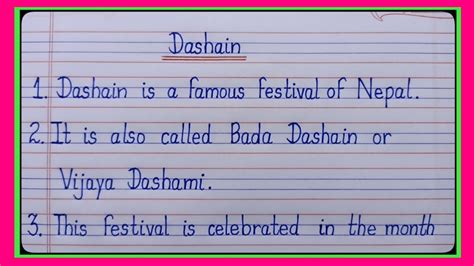 Dashain
1. Dashain is a famous festival of Nepal.
2. It is also called Bada Dashain or
Vijaya Dashami.
3. This festival is celebrated in the month